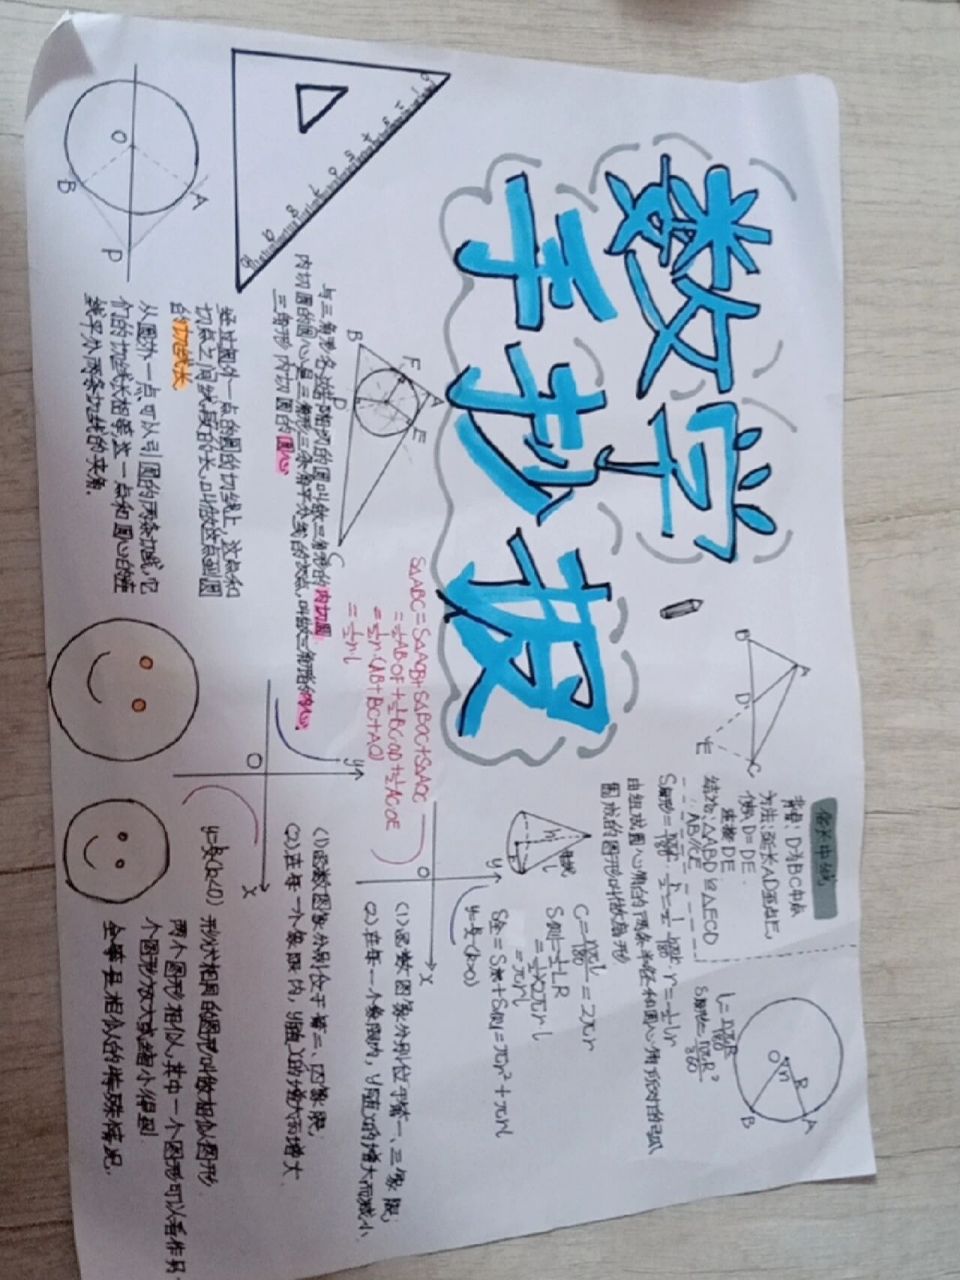 数学
手抄报
倍长中线
背景：D为BC中点
方法：延长AD至点E，
使AD=DE
连接DE
结论：△ABD≌△ECD
AB∥CE
A
B
D
C
E
O
n
R
A
B
l=nπR/180
S扇形=nπR²/360
由组成圆心角的两条半径和圆心角所对的弧
围成的图形叫做扇形
h
l
r
母线
C=nπl/180=2πr
S侧=1/2LR
=1/2×2πrl
=πrl
S全=S底+S侧=πr²+πrl
0 1 2 3 4 5 6 7 8 9 10
O
A
B
P
经过圆外一点的圆的切线上，这点和
切点之间线段的长，叫做这点到圆
的切线长
从圆外一点可以引圆的两条切线，它
们的切线长相等，这一点和圆心的连
线平分两条切线的夹角.
与三角形各边都相切的圆叫做三角形的内切圆
内切圆的圆心是三角形三条角平分线的交点，叫做三角形的内心
三角形内切圆的圆心
A
B
C
D
E
F
S△ABC=S△AOB+S△BOC+S△AOC
=1/2AB·OF+1/2BC·OD+1/2AC·OE
=1/2r·(AB+BC+AC)
=1/2r·l
y
x
O
y=k/x(k>0)
(1)函数图象分别位于第一、三象限；
(2)在每一个象限内，y随x的增大而减小.
y
x
O
y=k/x(k<0)
(1)函数图象分别位于第二、四象限；
(2)在每一个象限内，y随x的增大而增大
形状相同的图形叫做相似图形.
两个图形相似，其中一个图形可以看作另一
个图形放大或缩小得到
全等是相似的特殊情况.